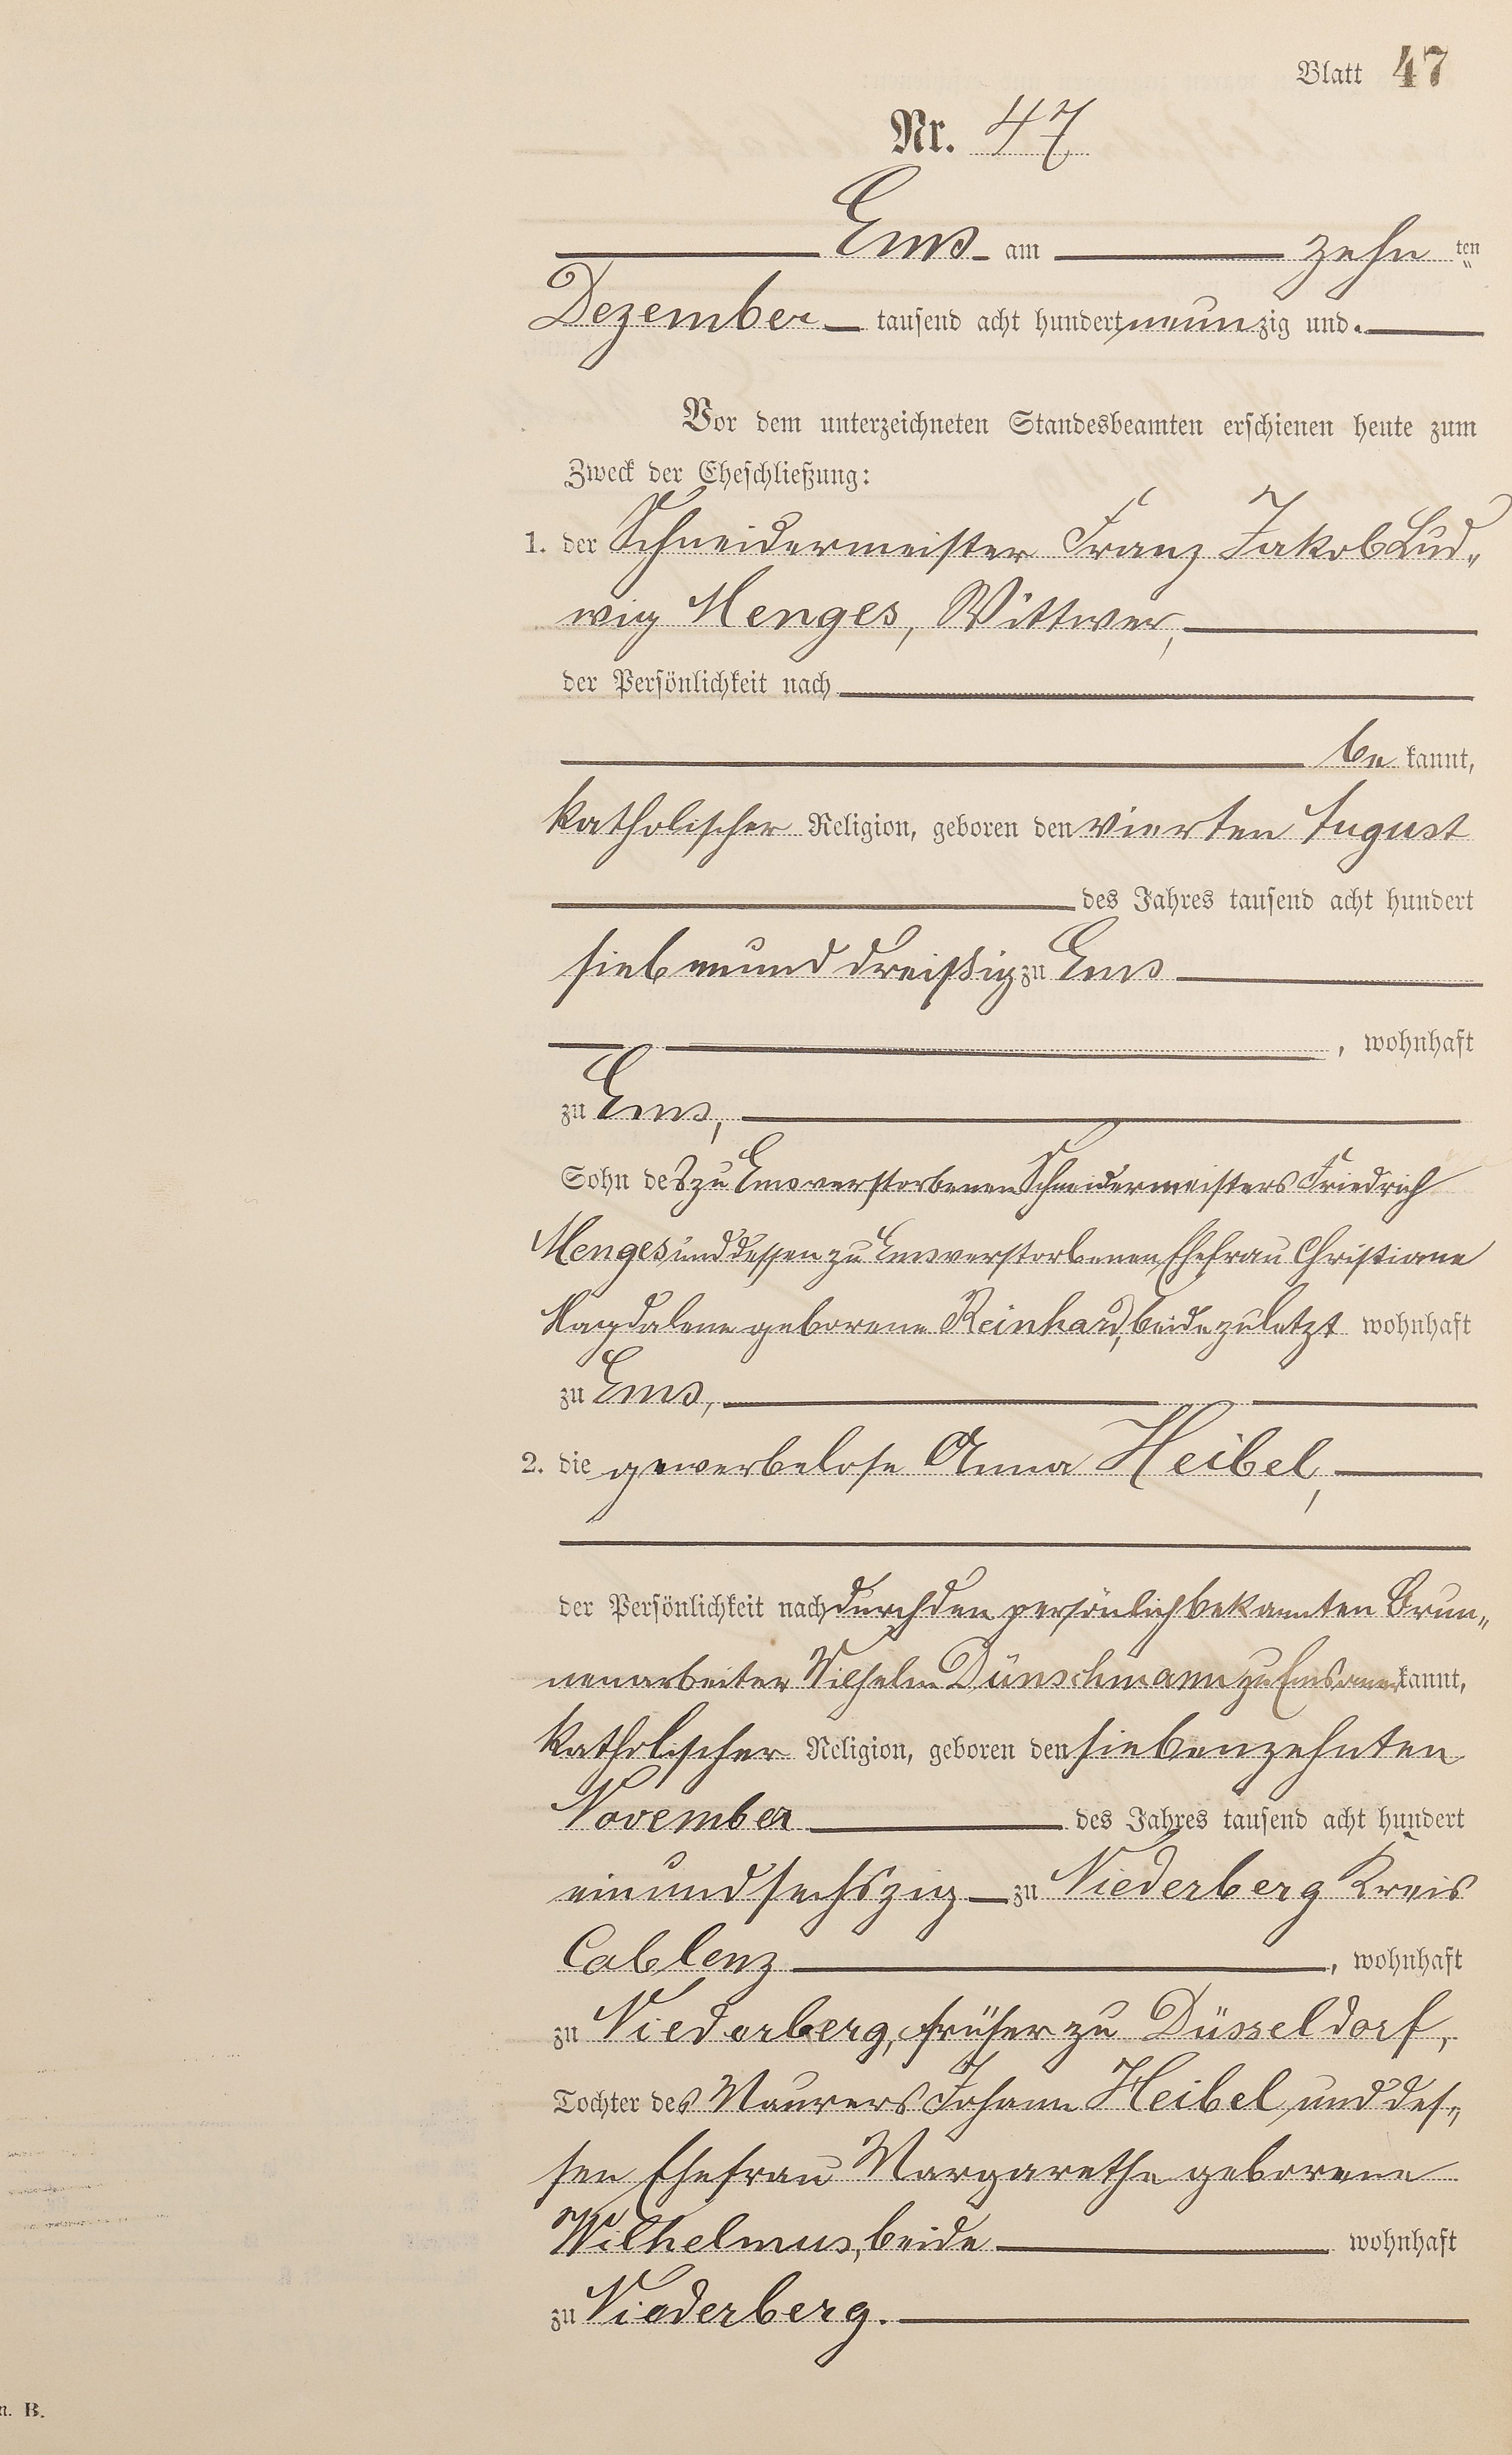 Blatt 47
Nr. 47
Ems am zehn ten
Dezember tausend acht hundert neunzig und
Vor dem unterzeichneten Standesbeamten erschienen heute zum
Zweck der Eheschließung:
1. der Schneidermeister Franz Jakob Lud„
wig Menges, Wittwer,
der Persönlichkeit nach
be kannt,
katholischer Religion, geboren den vierten August
des Jahres tausend acht hundert
siebenunddreißig zu Ems
, wohnhaft
zu Ems,
Sohn des zu Ems verstorbenen Schneidermeisters Friedrich
Menges und dessen zu Ems verstorbenen Ehefrau Christiane
Magdalene geborene Reinhard, beide zuletzt wohnhaft
zu Ems,
2. die gewerbelose Anna Heibel,
der Persönlichkeit nach durch den persönlich bekannten Brun„
nenarbeiter Wilhelm Dünschmann zu Ems anerkannt,
katholischer Religion, geboren den siebenzehnten
November des Jahres tausend acht hundert
einundsechszig zu Niederberg Kreis
Coblenz , wohnhaft
zu Niederberg, früher zu Düsseldorf,
Tochter des Maurers Johann Heibel und des„
sen Ehefrau Margarethe geborene
Wilhelmus, beide wohnhaft
zu Niederberg.
n. B.